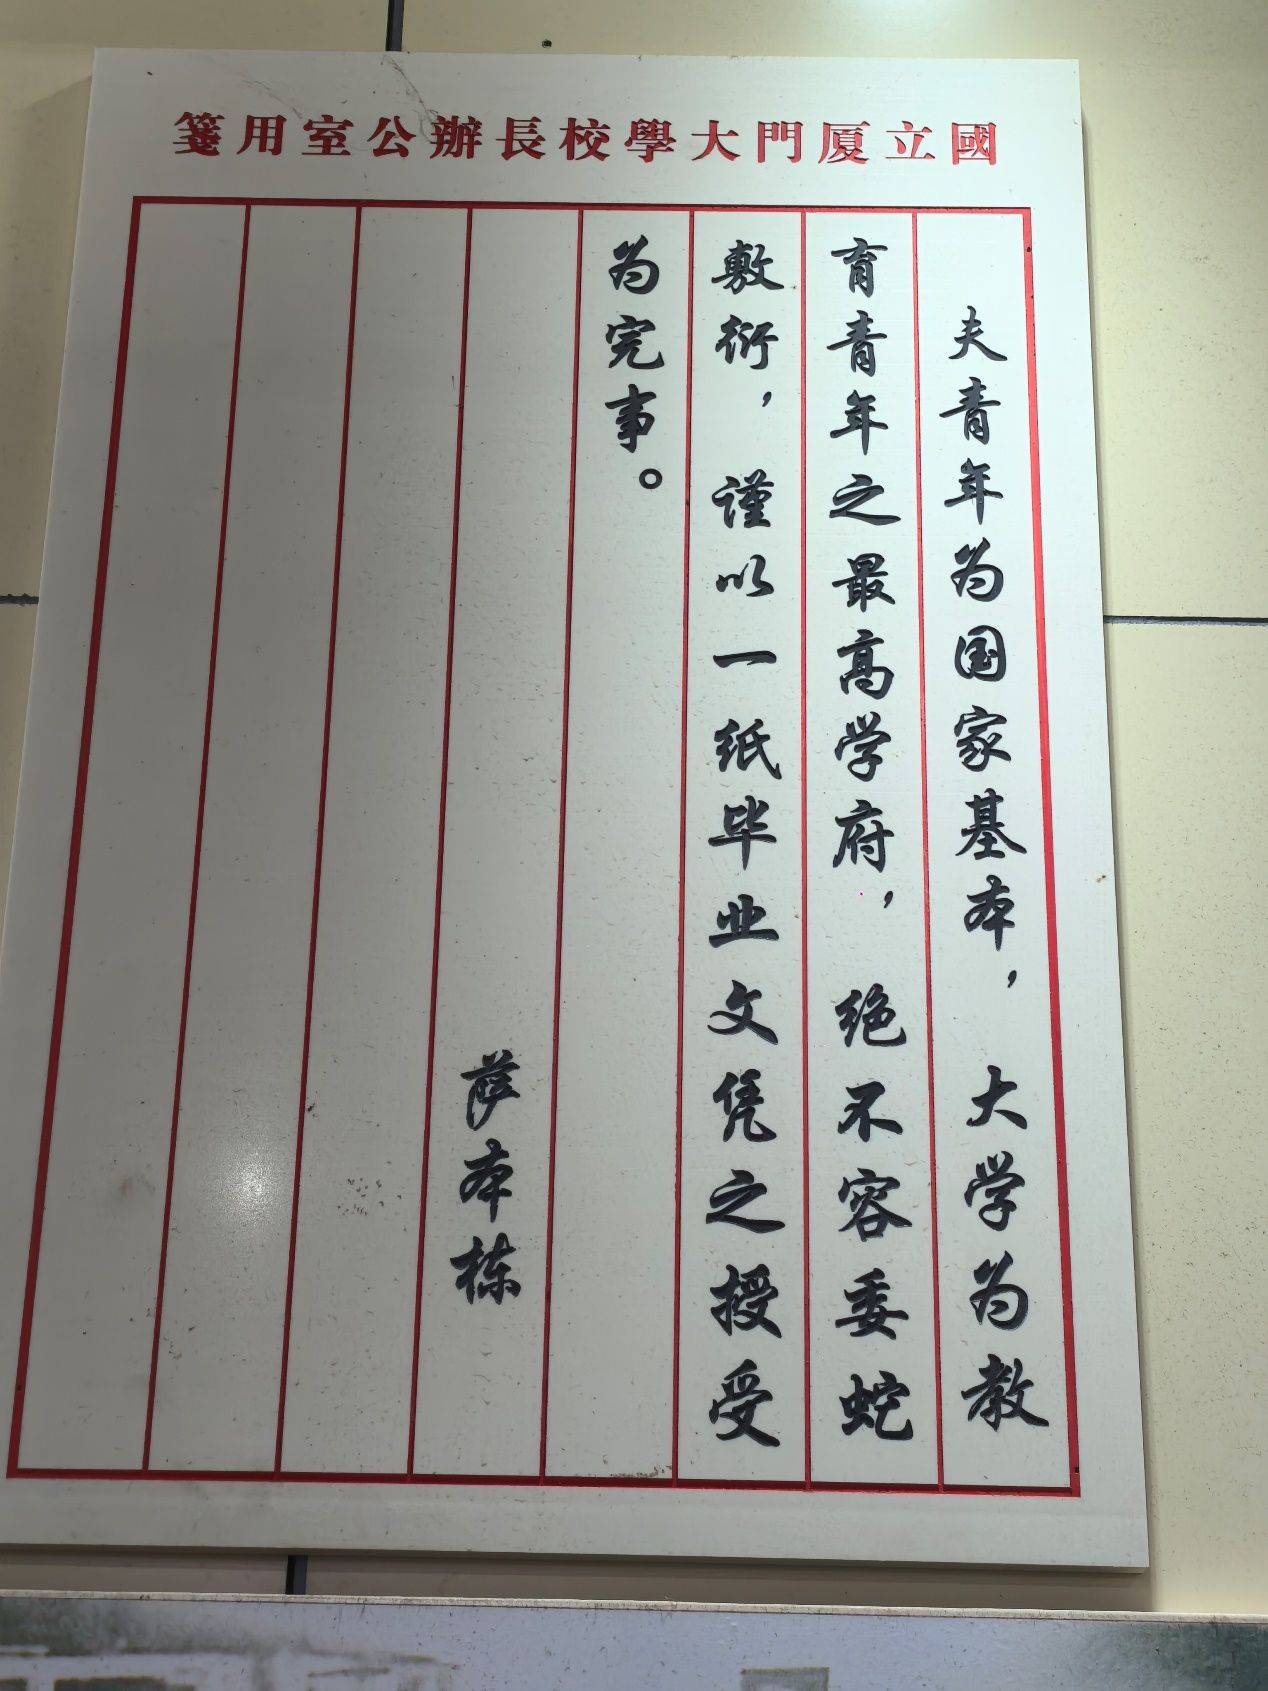 國立厦門大學校長辦公室用箋
夫青年为国家基本，大学为教
育青年之最高学府，绝不容委蛇
敷衍，谨以一纸毕业文凭之授受
为完事。
萨本栋